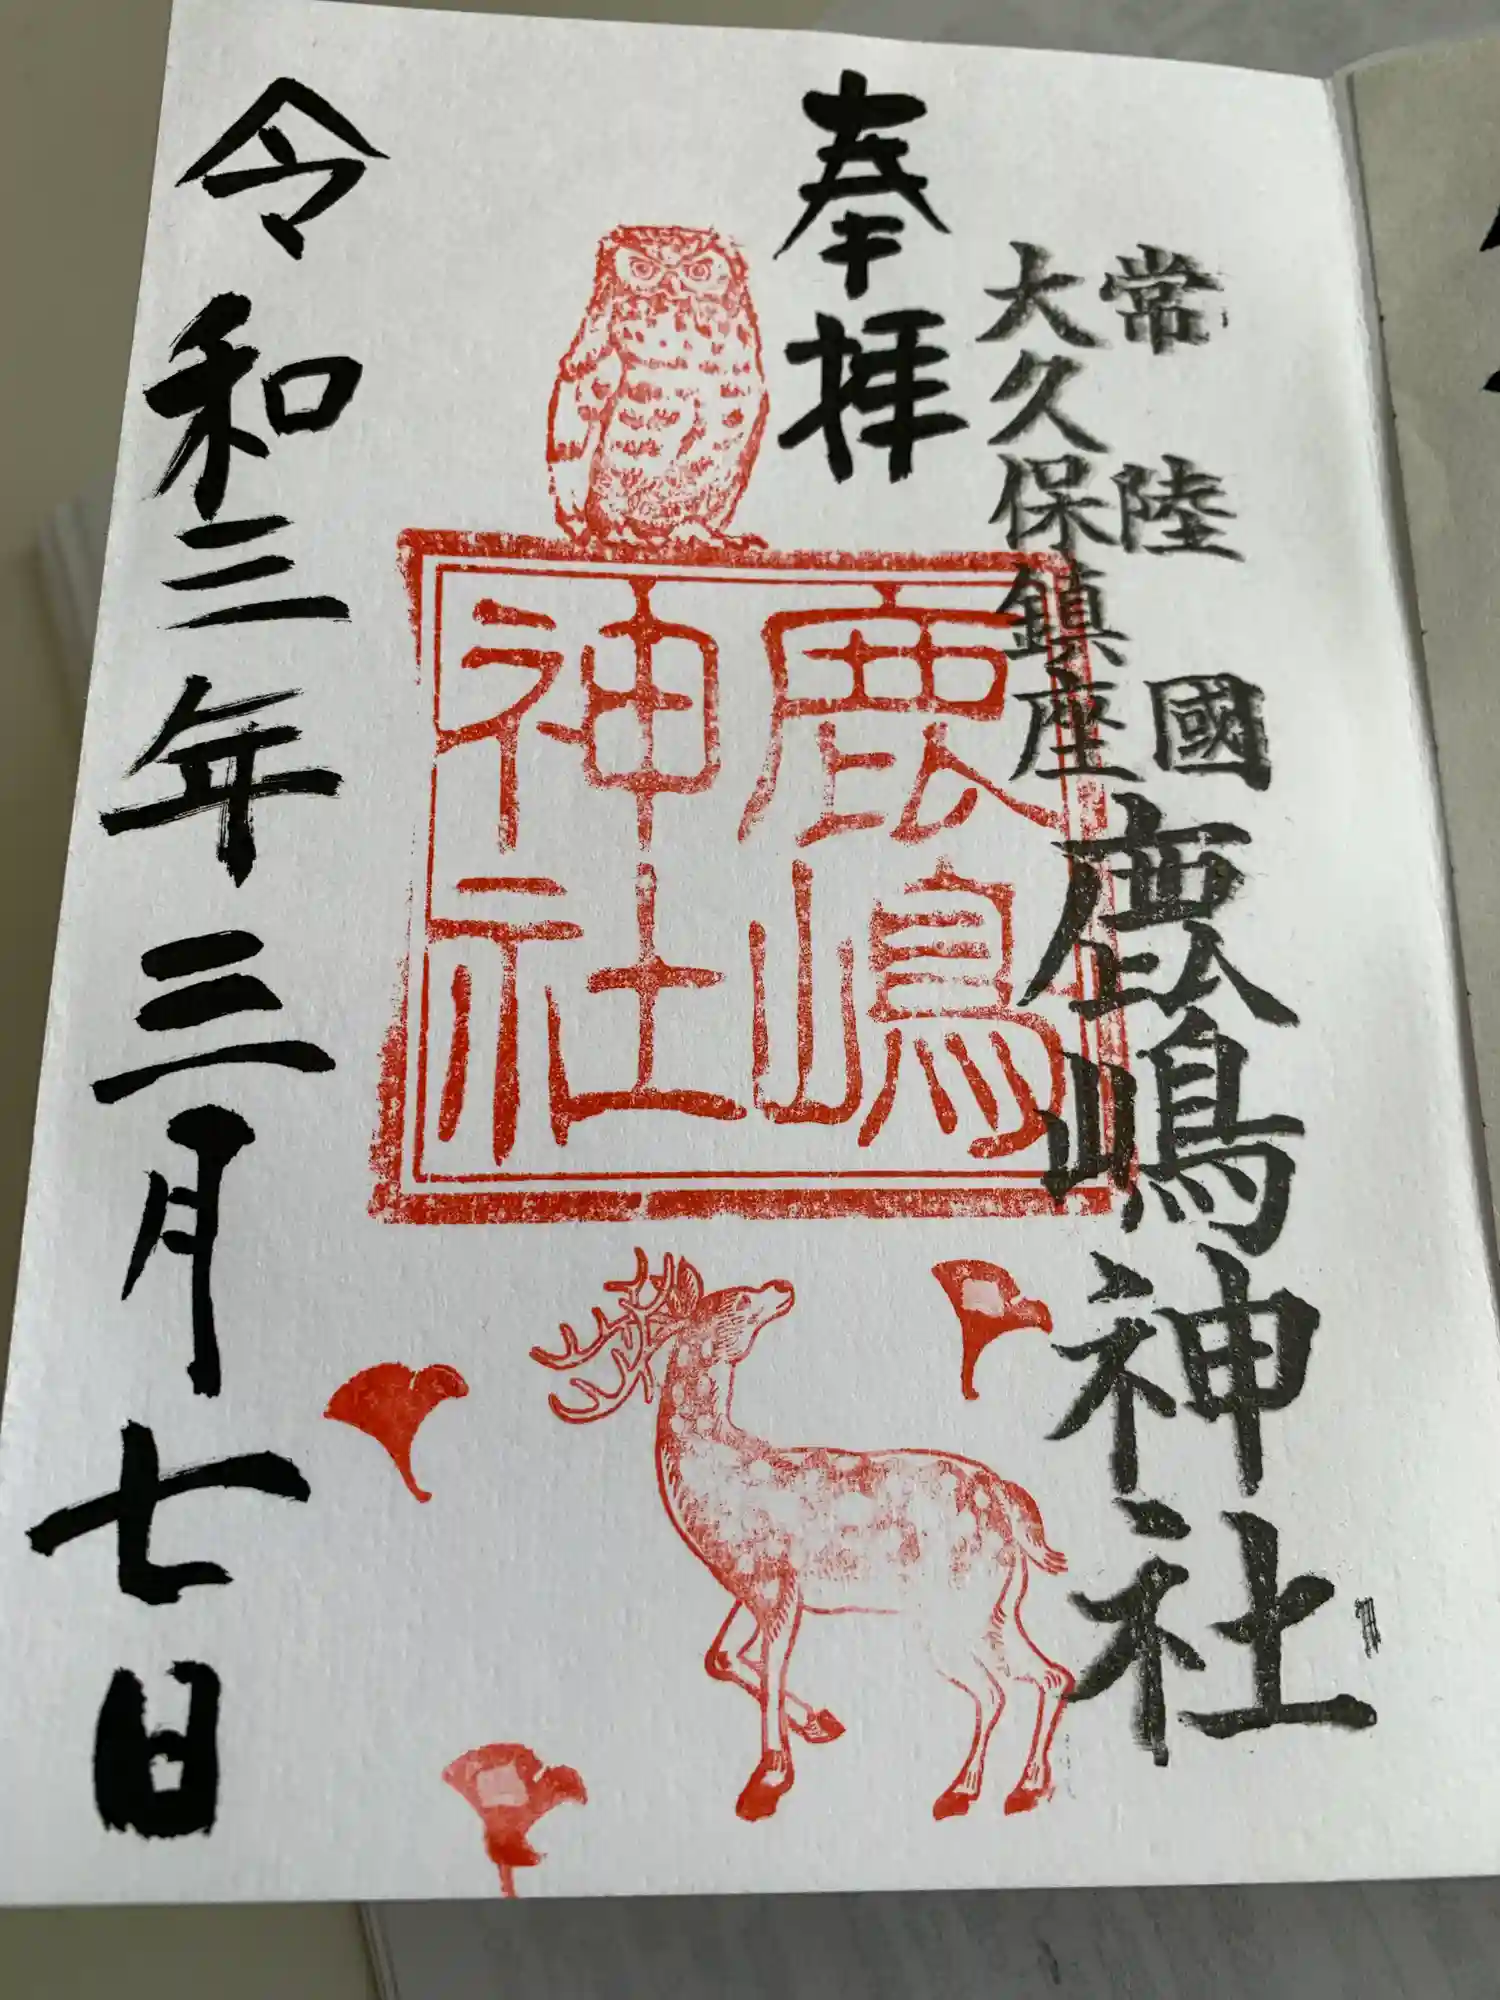 奉拝
常陸國
大久保鎮座
鹿嶋神社
鹿嶋
神社
令和三年三月七日